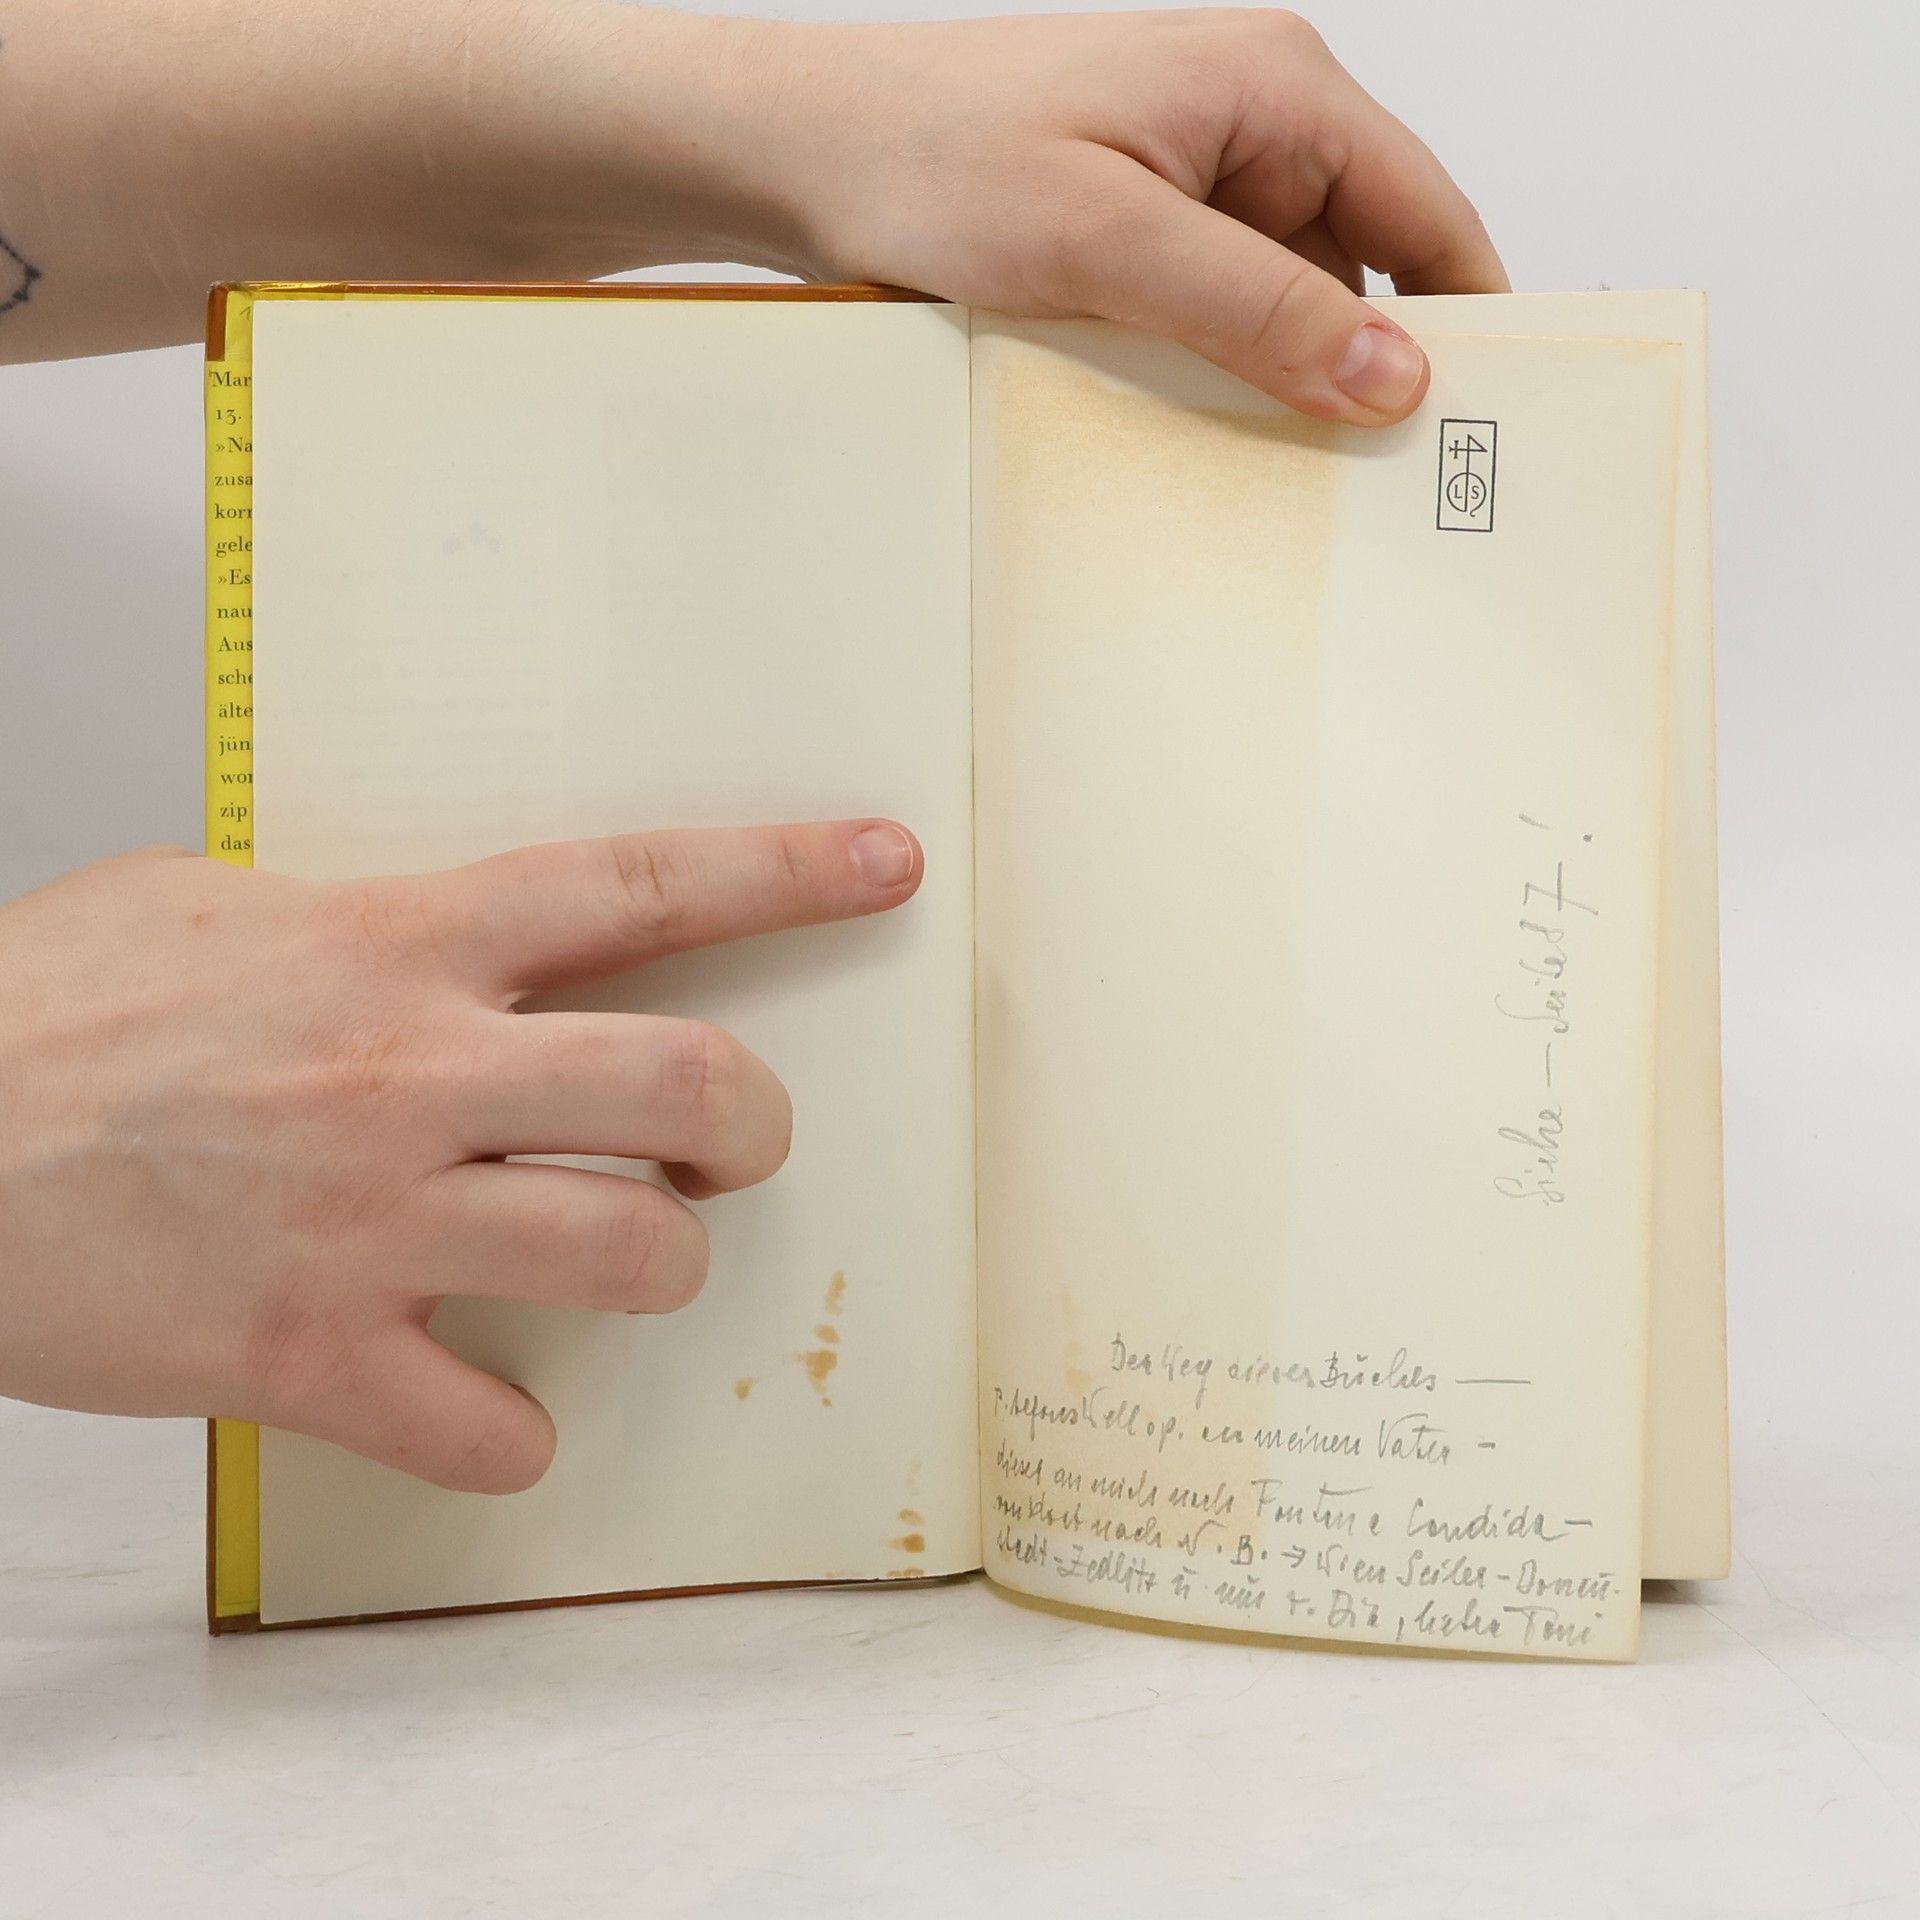 Mar
13.
»Na
zusa
korr
gele
»Es
nau
Aus
sche
älte
jün
wor
zip
das
L S
Siehe — Seite 87!
Der Weg dieses Buches —
P. Well o.p. an meinen Vater –
dieser an mich nach Fontana Candida –
von dort nach N. B. → Wien Seiler - Dornau-
stadt - Zedlitz u. nun z. Dir, liebe Toni